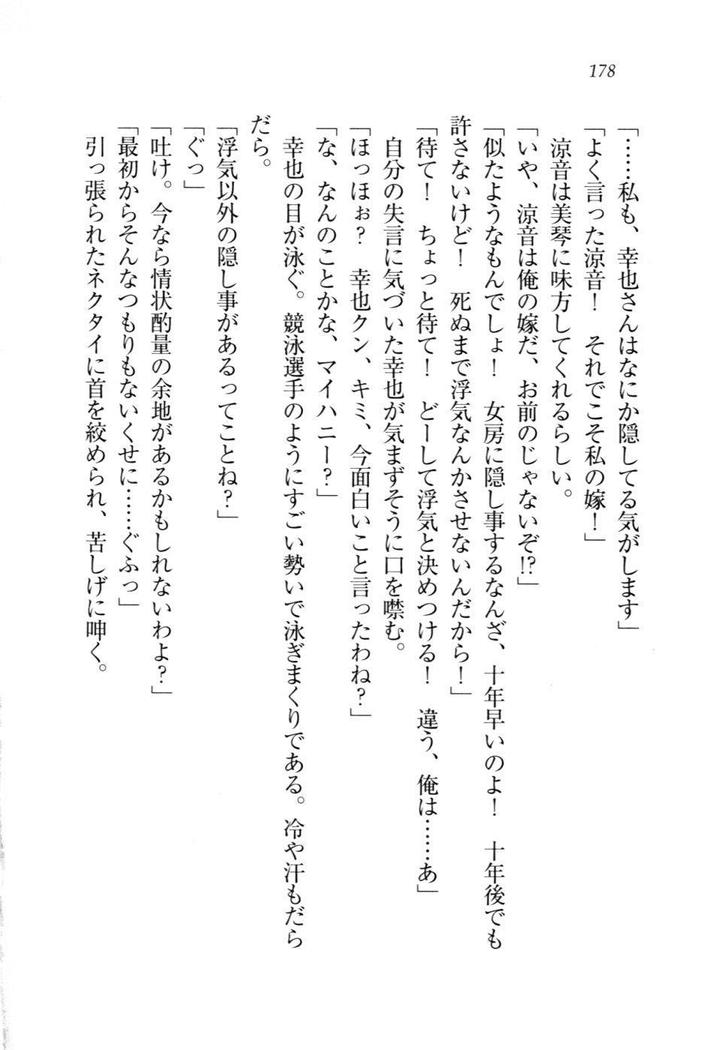 178
「……私も、幸也さんはなにか隠してる気がします」
「よく言った涼音！　それでこそ私の嫁！」
　涼音は美琴に味方してくれるらしい。
「いや、涼音は俺の嫁だ、お前のじゃないぞ!?」
「似たようなもんでしょ！　女房に隠し事するなんざ、十年早いのよ！　十年後でも
許さないけど！　死ぬまで浮気なんかさせないんだから！」
「待て！　ちょっと待て！　どーして浮気と決めつける！　違う、俺は……あ」
　自分の失言に気づいた幸也が気まずそうに口を噤む。
「ほっほぉ？　幸也クン、キミ、今面白いこと言ったわね？」
「な、なんのことかな、マイハニー？」
　幸也の目が泳ぐ。競泳選手のようにすごい勢いで泳ぎまくりである。冷や汗もだら
だら。
「浮気以外の隠し事があるってことね？」
「ぐっ」
「吐け。今なら情状酌量の余地があるかもしれないわよ？」
「最初からそんなつもりもないくせに……ぐふっ」
　引っ張られたネクタイに首を絞められ、苦しげに呻く。